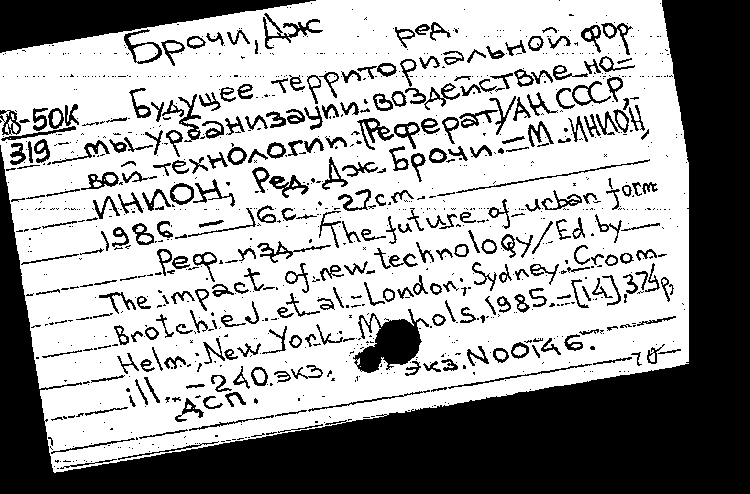 Брочи, Дж ред.
Будущее территориальной фор
-50К мы урбанизации: воздействие но=
319 вой технологии: [Реферат]/АН СССР,
ИНИОН; Ред. Дж. Брочи. – М.: ИНИОН,
1986. – 16с.; 27cm
Реф. изд.: The future of urban form
The impact of new technology/Ed. by
Brotchie J. et al. – London; Sydney: Croom
Helm; New York: hols, 1985. – [14], 374p,
ill. – 240.экз. экз. N00146.
ДСП.